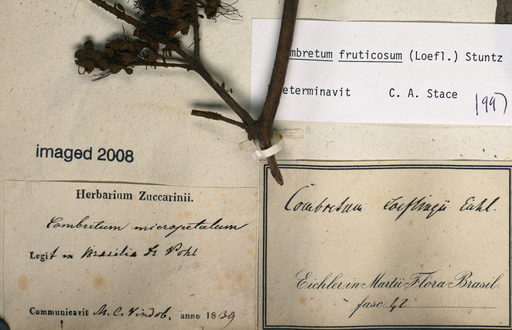 mbretum fruticosum (Loefl.) Stuntz
eterminavit C. A. Stace
1997
imaged 2008
Herbarium Zuccarinii.
Combretum micropetalum
Legit in Brasilia Dr Pohl
Communicavit M. C. Vindob. anno 1839
Combretum Loeflingii Eichl.
Eichler in Martii Flora Brasil.
fasc 42